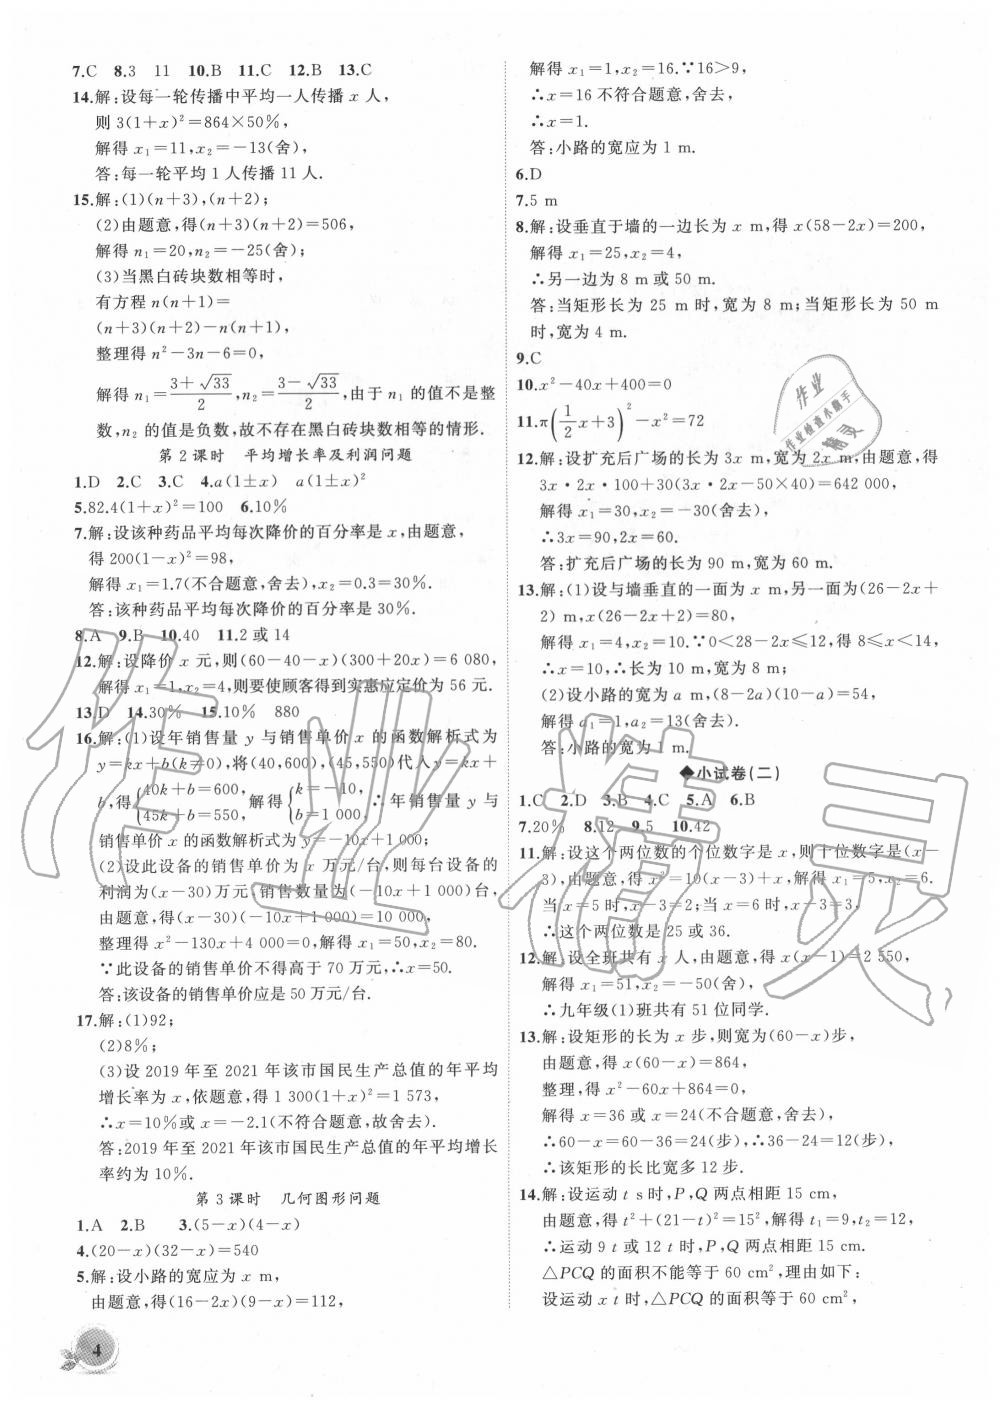 7.C 8.3 11 10.B 11.C 12.B 13.C
14.解:设每一轮传播中平均一人传播 x 人,
则 3(1+x)²=864×50%,
解得 x₁=11,x₂=-13(舍),
答:每一轮平均 1 人传播 11 人.
15.解:(1)(n+3),(n+2);
(2)由题意,得(n+3)(n+2)=506,
解得 n₁=20,n₂=-25(舍);
(3)当黑白砖块数相等时,
有方程 n(n+1)=
(n+3)(n+2)-n(n+1),
整理得 n²-3n-6=0,
解得 n₁=(3+√33)/2,n₂=(3-√33)/2,由于 n₁ 的值不是整
数,n₂ 的值是负数,故不存在黑白砖块数相等的情形.
第 2 课时 平均增长率及利润问题
1.D 2.C 3.C 4.a(1±x) a(1±x)²
5.82.4(1+x)²=100 6.10%
7.解:设该种药品平均每次降价的百分率是 x,由题意,
得 200(1-x)²=98,
解得 x₁=1.7(不合题意,舍去),x₂=0.3=30%.
答:该种药品平均每次降价的百分率是 30%.
8.A 9.B 10.40 11.2 或 14
12.解:设降价 x 元,则(60-40-x)(300+20x)=6 080,
解得 x₁=1,x₂=4,则要使顾客得到实惠应定价为 56 元.
13.D 14.30% 15.10% 880
16.解:(1)设年销售量 y 与销售单价 x 的函数解析式为
y=kx+b(k≠0),将(40,600),(45,550)代入 y=kx+
b,得{40k+b=600, 45k+b=550, 解得{k=-10, b=1 000, ∴年销售量 y 与
销售单价 x 的函数解析式为 y=-10x+1 000;
(2)设此设备的销售单价为 x 万元/台,则每台设备的
利润为(x-30)万元,销售数量为(-10x+1 000)台,
由题意,得(x-30)(-10x+1 000)=10 000,
整理得 x²-130x+4 000=0,解得 x₁=50,x₂=80.
∵此设备的销售单价不得高于 70 万元,∴x=50.
答:该设备的销售单价应是 50 万元/台.
17.解:(1)92;
(2)8%;
(3)设 2019 年至 2021 年该市国民生产总值的年平均
增长率为 x,依题意,得 1 300(1+x)²=1 573,
∴x=10%或 x=-2.1(不符合题意,故舍去).
答:2019 年至 2021 年该市国民生产总值的年平均增长
率约为 10%.
第 3 课时 几何图形问题
1.A 2.B 3.(5-x)(4-x)
4.(20-x)(32-x)=540
5.解:设小路的宽应为 x m,
由题意,得(16-2x)(9-x)=112,
4
解得 x₁=1,x₂=16.∵16>9,
∴x=16 不符合题意,舍去,
∴x=1.
答:小路的宽应为 1 m.
6.D
7.5 m
8.解:设垂直于墙的一边长为 x m,得 x(58-2x)=200,
解得 x₁=25,x₂=4,
∴另一边为 8 m 或 50 m.
答:当矩形长为 25 m 时,宽为 8 m;当矩形长为 50 m
时,宽为 4 m.
9.C
10.x²-40x+400=0
11.π(1/2x+3)²-x²=72
12.解:设扩充后广场的长为 3x m,宽为 2x m,由题意,得
3x·2x·100+30(3x·2x-50×40)=642 000,
解得 x₁=30,x₂=-30(舍去),
∴3x=90,2x=60.
答:扩充后广场的长为 90 m,宽为 60 m.
13.解:(1)设与墙垂直的一面为 x m,另一面为(26-2x+
2) m,x(26-2x+2)=80,
解得 x₁=4,x₂=10.∵0<28-2x≤12,得 8≤x<14,
∴x=10,∴长为 10 m,宽为 8 m;
(2)设小路的宽为 a m,(8-2a)(10-a)=54,
解得 a₁=1,a₂=13(舍去).
答:小路的宽为 1 m.
◆小试卷(二)
1.C 2.D 3.B 4.C 5.A 6.B
7.20% 8.12 9.5 10.42
11.解:设这个两位数的个位数字是 x,则十位数字是(x-
3),由题意,得 x²=10(x-3)+x,解得 x₁=5,x₂=6.
当 x=5 时,x-3=2;当 x=6 时,x-3=3,
∴这个两位数是 25 或 36.
12.解:设全班共有 x 人,由题意,得 x(x-1)=2 550,
解得 x₁=51,x₂=-50(舍),
∴九年级(1)班共有 51 位同学.
13.解:设矩形的长为 x 步,则宽为(60-x)步,
由题意,得 x(60-x)=864,
整理,得 x²-60x+864=0,
解得 x=36 或 x=24(不合题意,舍去),
∴60-x=60-36=24(步),∴36-24=12(步),
∴该矩形的长比宽多 12 步.
14.解:设运动 t s时,P,Q 两点相距 15 cm,
由题意,得 t²+(21-t)²=15²,解得 t₁=9,t₂=12,
∴运动 9 t 或 12 t 时,P,Q 两点相距 15 cm.
△PCQ 的面积不能等于 60 cm²,理由如下:
设运动 x t 时,△PCQ 的面积等于 60 cm²,
作业
作业检查小助手
精灵
作业精灵